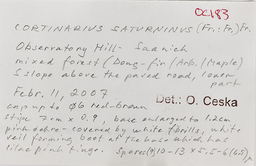 OC183
CORTINARIUS SATURNINUS (Fr.:Fr.) Fr.
Observatory Hill - Saanich
mixed forest (Doug-fir/Arb./Maple)
S slope above the paved road, lower
part
Febr. 11, 2007
Det.: O. Ceska
cap up to Φ6 red-brown
stipe 7cm x 0.9, base enlarged to 1.2cm
pink-ochre - covered by white fibrills, white
veil forming belt at the base which has
lilac pink tinge. Spores (9)10-13 x 5.5-6(6.5)